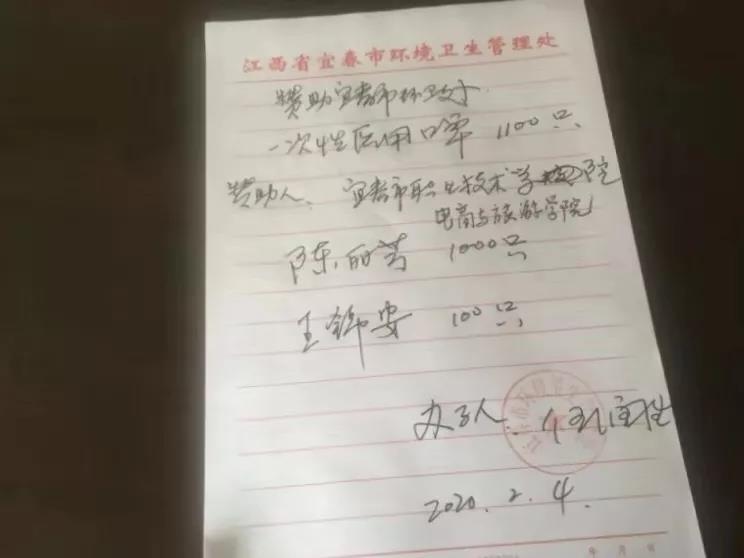 江西省宜春市环境卫生管理处
赞助宜春市环卫处
一次性医用口罩 1100只
赞助人: 宜春市职业技术学院
电商与旅游学院
陈丽芳 1000只
王锦安 100只
办了人:
2020.2.4.
年 月 日